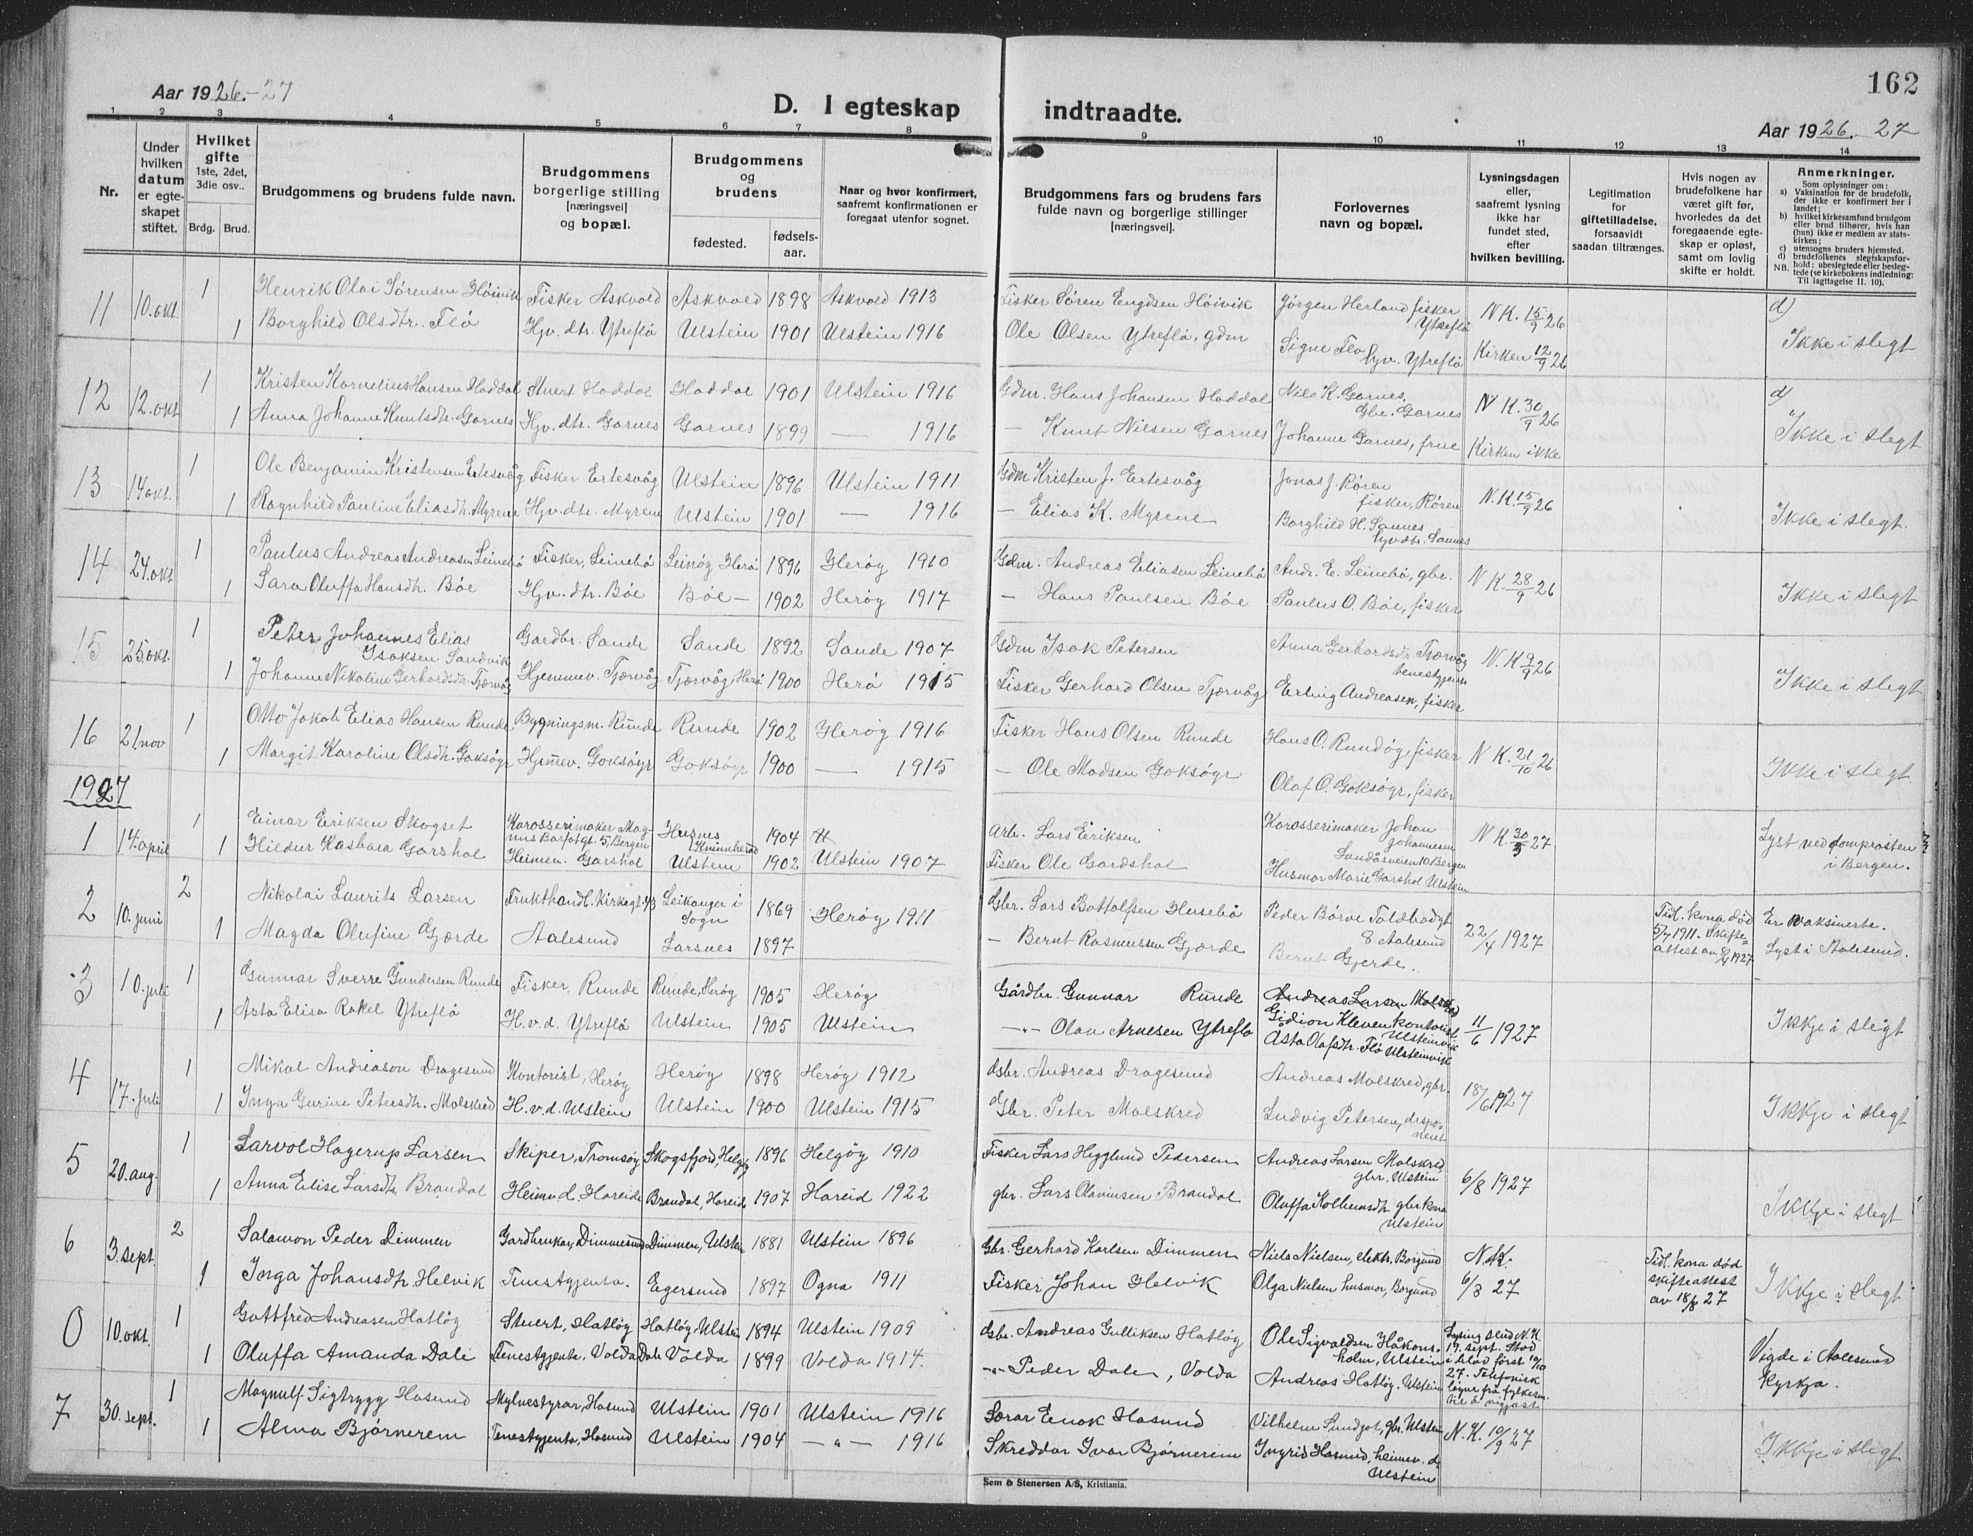 162
Aar 1926.-27
D. I egteskap indtraadte.
Aar 1926.-27
1 2 3 4 5 6 7 8 9 10 11 12 13 14
Nr.
Under hvilken datum er egteskapet stiftet.
Hvilket gifte 1ste, 2det, 3die osv..
Brdg. Brud.
Brudgommens og brudens fulde navn.
Brudgommens borgerlige stilling [næringsvei] og bopæl.
Brudgommens og brudens
fødested. fødselsaar.
Naar og hvor konfirmert, saafremt konfirmationen er foregaat utenfor sognet.
Brudgommens fars og brudens fars fulde navn og borgerlige stillinger [næringsvei].
Forlovernes navn og bopæl.
Lysningsdagen eller, saafremt lysning ikke har fundet sted, efter hvilken bevilling.
Legitimation for giftetilladelse, forsaavidt saadan tiltrænges.
Hvis nogen av brudefolkene har været gift før, hvorledes da det foregaaende egteskap er opløst, samt om lovlig skifte er holdt.
Anmerkninger.
Som oplysninger om:
a) Vaksination for de brudefolk, der ikke er konfirmert her i landet;
b) hvilket kirkesamfund brudgom eller brud tilhører, hvis han (hun) ikke er medlem av statskirken;
c) utensogns bruders hjemsted.
d) brudefolkenes slegtskapsforhold: ubeslegtede eller beslegtede (se kirkebokens indledning:
NB. Til Iagttagelse II. 10).
11 10.okt. 1 Henrik Olai Sørensen Höivik Fisker Askvold Askvold 1898 Askvold 1913 Fisker Sören Engdsen Höivik Jörgen Herland fisker Ytreflö N K. 15/9 26 d)
1 Borghild Olsdtr. Flö Hjv. dtr. Ytreflö Ulstein 1901 Ulstein 1916 Ole Olsen Ytreflö, gdm Signe Flö hjv. Ytreflö Kirken 12/9 26 Ikke i slegt
12 12.okt 1 Kristen Kornelius Hansen Haddal Stuert Haddal Haddal 1901 Ulstein 1916 Gdm. Hans Johansen Haddal Niels K. Garnes, Gbr. Garnes N K. 30/9 26 d)
1 Anna Johanne Knutsdtr. Garnes Hjv. dtr. Garnes Garnes 1899 — 1916 — Knut Nilsen Garnes Johanne Garnes, frue Kirken ikke Ikke i slegt
13 14 okt. 1 Ole Benjamin Kristensen Ertesvåg Fisker Ertesvåg Ulstein 1896 Ulstein 1911 Gdm Kristen J. Ertesvåg Jonas J. Røren fisker, Røren N. K. 15/9 26
1 Ragnhild Pauline Eliasdtr. Myrene Hjv. dtr. Myrene Ulstein 1901 — 1916 — Elias K. Myrene Borghild H. Sannes hjv. dtr. Sannes Ikke i slegt.
14 24.okt 1 Paulus Andreas Andreasen Leinebö Fisker, Leinebö Leinöy Herö 1896 Heröy 1910 Gdm. Andreas Eliasen Leinebö Andr. E. Leinebö, gbr. N K. 28/9 26
1 Sara Oluffa Hansdtr. Böe Hjv. dtr. Böe Böe — 1902 Heröy 1917 — Hans Paulsen Böe Paulus O. Böe, fisker Ikke i slegt
15 25.okt. 1 Peter Johannes Elias Isaksen Sandvik Gardbr. Sande Sande 1892 Sande 1907 Gdm Isak Petersen Anna Gerhardsdtr. Tjervåg tenestjjente N. K 9/9 26
1 Johanne Nikoline Gerhardsdtr. Tjervåg Hjemmev. Tjervåg Tjervåg, Herö 1900 Herö 1915 Fisker Gerhard Olsen Tjervåg Erling Andreasen, fisker Ikke i slegt
16 21 nov 1 Otto Jakob Elias Hansen Runde Bygningsm. Runde Runde 1902 Heröy 1916 Fisker Hans Olsen Runde Hans O. Rundöy, fisker N K. 21/10 26
1 Margit Karoline Olsdtr. Goksöyr Hjmev. Goksöyr Goksöyr 1900 — 1915 — Ole Madsen Goksöyr Olaf O. Goksöyr, fisker Ikke i slegt
1927
1 14.april 1 Einar Eriksen Skogset Karosserimaker Magnus Barfotgt. 5, Bergen Husnes Kvinnherad 1904 Arb. Lars Eriksen Karosserimaker Johan Johannesen Landåsveien 10 Bergen N K 30/3 27 Lyst ved domprosten i Bergen.
1 Hildur Kasbara Garshol Heimen. Garshol Ulstein 1902 Ulstein 1907 Fisker Ole Gardshol Husmor Marie Garshol Ulstein
2 10. juni 2 Nikolai Laurits Larsen Frukthandl. Kirkegt. 43 Leikanger i Sogn 1869 Gbr. Lars Bottolfsen Husebö Peder Börve Toldbodgt 8 Aalesund 22/4 1927 Tidl. kona död 5/7 1911. Skifteattest av 9/4 1927 Er vaksinerte.
1 Magda Olufine Gjerde Aalesund Larsnes 1897 Heröy 1911 — Bernt Rasmussen Gjerde Bernt Gjerde. Lyst i Aalesund.
3 10. juli 1 Gunnar Sverre Gundersen Runde Fisker, Runde Runde, Heröy 1905 Heröy Gårdbr. Gunnar Runde Andreas Larsen Malskred Gidion Kleven kontorist Ulsteinvik 11/6 1927
1 Asta Elisa Rakel Ytreflö H. v. d. Ytreflö Ulstein 1905 Ulstein —"— Olav Arnesen Ytreflo Åsta Olafsdtr. Flö Ulsteinvik Ikkje i slegt
4 17. juli 1 Mikal Andreason Dragesund Kontorist, Heröy Heröy 1898 Heröy 1912 Gbr. Andreas Dragesund Andreas Malskred, gbr. 18/6 1927
1 Inga Gurine Petersdtr. Malskred H. v. d. Ulstein Ulstein 1900 Ulstein 1915 Gbr. Peter Malskred Ludvig Petersen, disponent Ikkje i slegt
5 20. aug. 1 Sarvol Hagerup Larsen Skiper, Tromsöy Skogsfjord, Helgöy 1896 Helgöy 1910 Fisker Lars Hegglund Pedersen Andreas Larsen Malskred, gbr. Ulstein 6/8 1927
1 Anna Elise Larsdtr. Brandal Heimv. d. Hareide Brandal, Hareid 1907 Hareid 1922 gbr. Lars Olavinsen Brandal Oluffa Kolbeinsdtr gbr.kona Ulstein Ikkje i slegt
6 3. sept. 2 Salamon Peder Dimmen Gardbrukar, Dimmesund Dimmen, Ulstein 1881 Ulstein 1896 Gbr. Gerhard Karlsen Dimmen Niels Nielsen, elektr. Borgund N. K. Tidl. kona död
1 Inga Johansdtr. Helvik Tenestgjenta. Egersund 1897 Ogna 1911 Fisker Johan Helvik Olga Nielsen husmor, Borgund 6/3 27 skifteattest av 18/8 27 Ikkje i slegt
0 10. okt. 1 Gottfred Andreasen Hatlöy Stuert, Hatlöy Hatlöy, Ulstein 1894 Ulstein 1909 Gbr. Andreas Gulliksen Hatlöy Ole Sigvaldsen Håkonsholm, Ulstein Lysing slud N. K. 19. sept. Stod i blad först 10/10
1 Oluffa Amanda Dale Tenestgjenta, Volda Dale Volda 1899 Volda 1914. —"— Peder Dale, Volda Andreas Hatlöy. Ulstein 27. Telefonisk Vigde i Aalesund kyrkja.
7 30. sept. 1 Magnulf Sigtrygg Hasund Mylnestyrar, Hasund Ulstein 1901 Ulstein 1916 Lærar Enok Hasund Vilhelm Sundgot, gbr. Ulstein N. K. 10/9 27
1 Alma Bjørnerem Tenestgjenta, Hasund Ulstein 1904 —"— 1916 Skreddar Ivar Bjørnerem Ingrid Hasund, heimev. d. Ulstein Ikkje i slegt
Sem & Stenersen A/S, Kristiania.